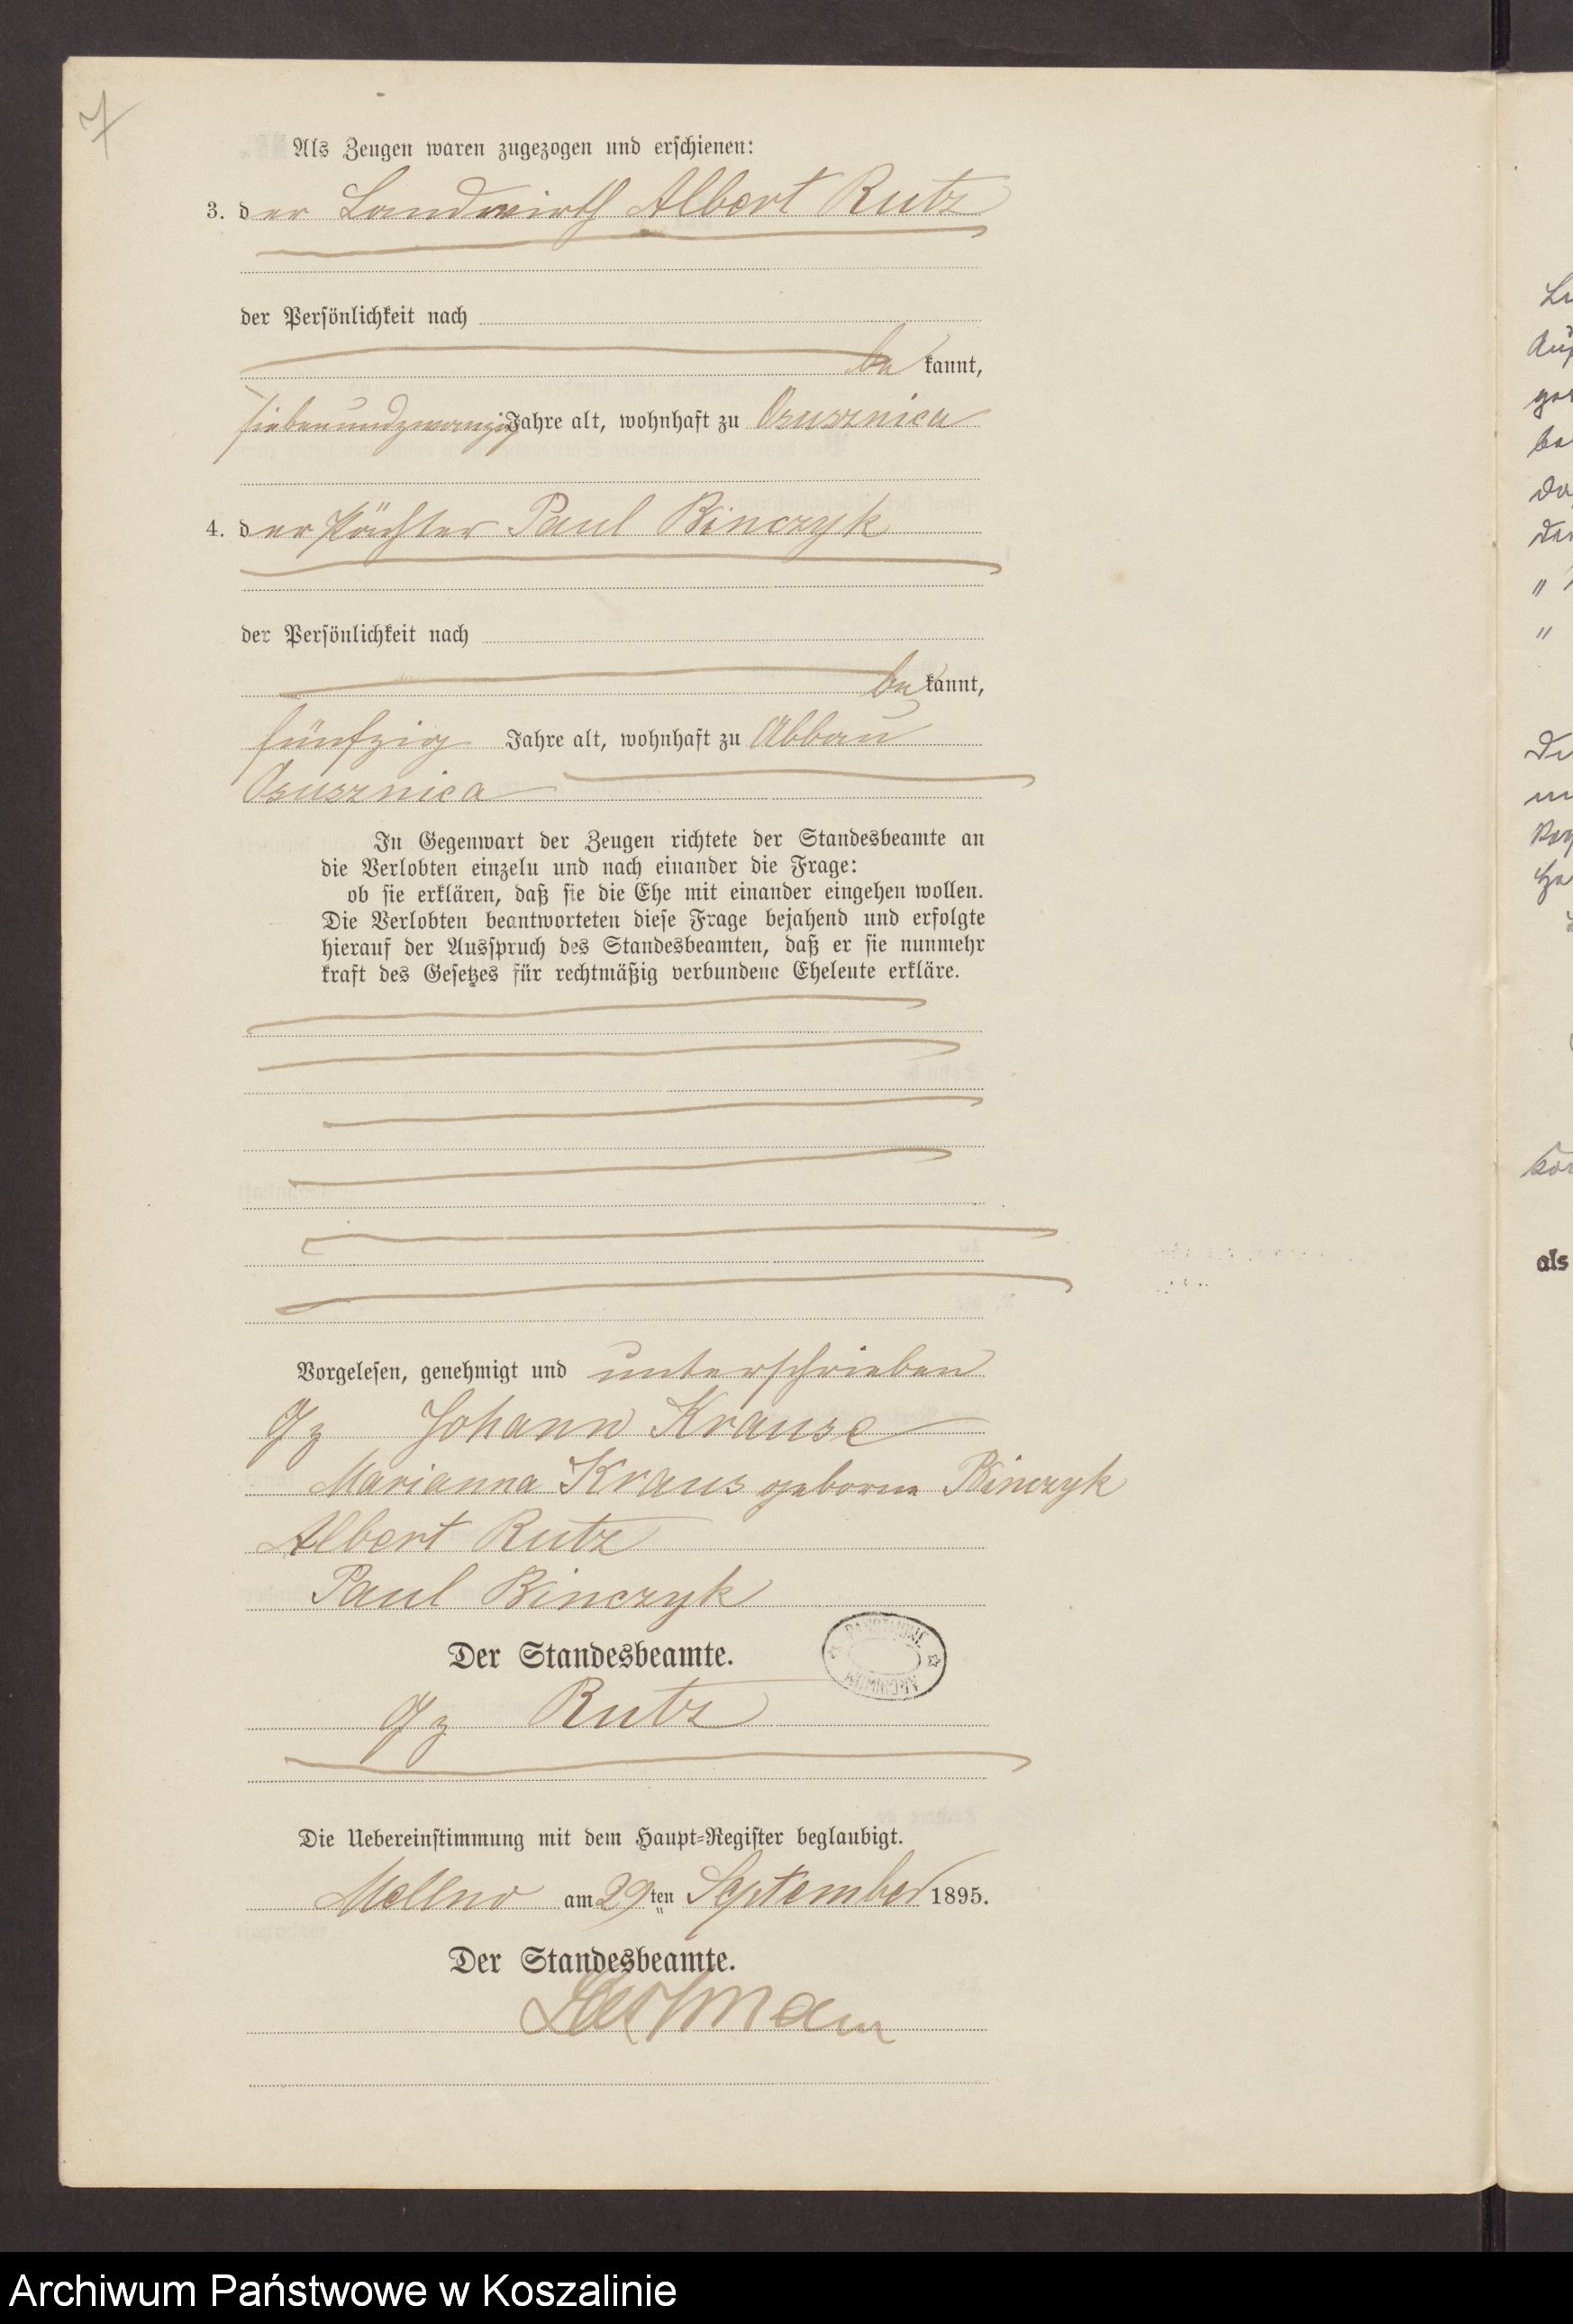 7
Als Zeugen waren zugezogen und erschienen:
3. der Landwirth Albert Rutz
der Persönlichkeit nach
be kannt,
siebenundzwanzig Jahre alt, wohnhaft zu Osusznica
4. der Pächter Paul Binczyk
der Persönlichkeit nach
be kannt,
fünfzig Jahre alt, wohnhaft zu Abbau
Osusznica
In Gegenwart der Zeugen richtete der Standesbeamte an
die Verlobten einzeln und nach einander die Frage:
ob sie erklären, daß sie die Ehe mit einander eingehen wollen.
Die Verlobten beantworteten diese Frage bejahend und erfolgte
hierauf der Ausspruch des Standesbeamten, daß er sie nunmehr
kraft des Gesetzes für rechtmäßig verbundene Eheleute erkläre.
Vorgelesen, genehmigt und unterschrieben
Gz Johann Krause
Marianna Kraus geborne Binczyk
Albert Rutz
Paul Binczyk
Der Standesbeamte.
Gz Rutz
Die Uebereinstimmung mit dem Haupt-Register beglaubigt.
Mellno am 29 ten September 1895.
Der Standesbeamte.
als
Archiwum Państwowe w Koszalinie